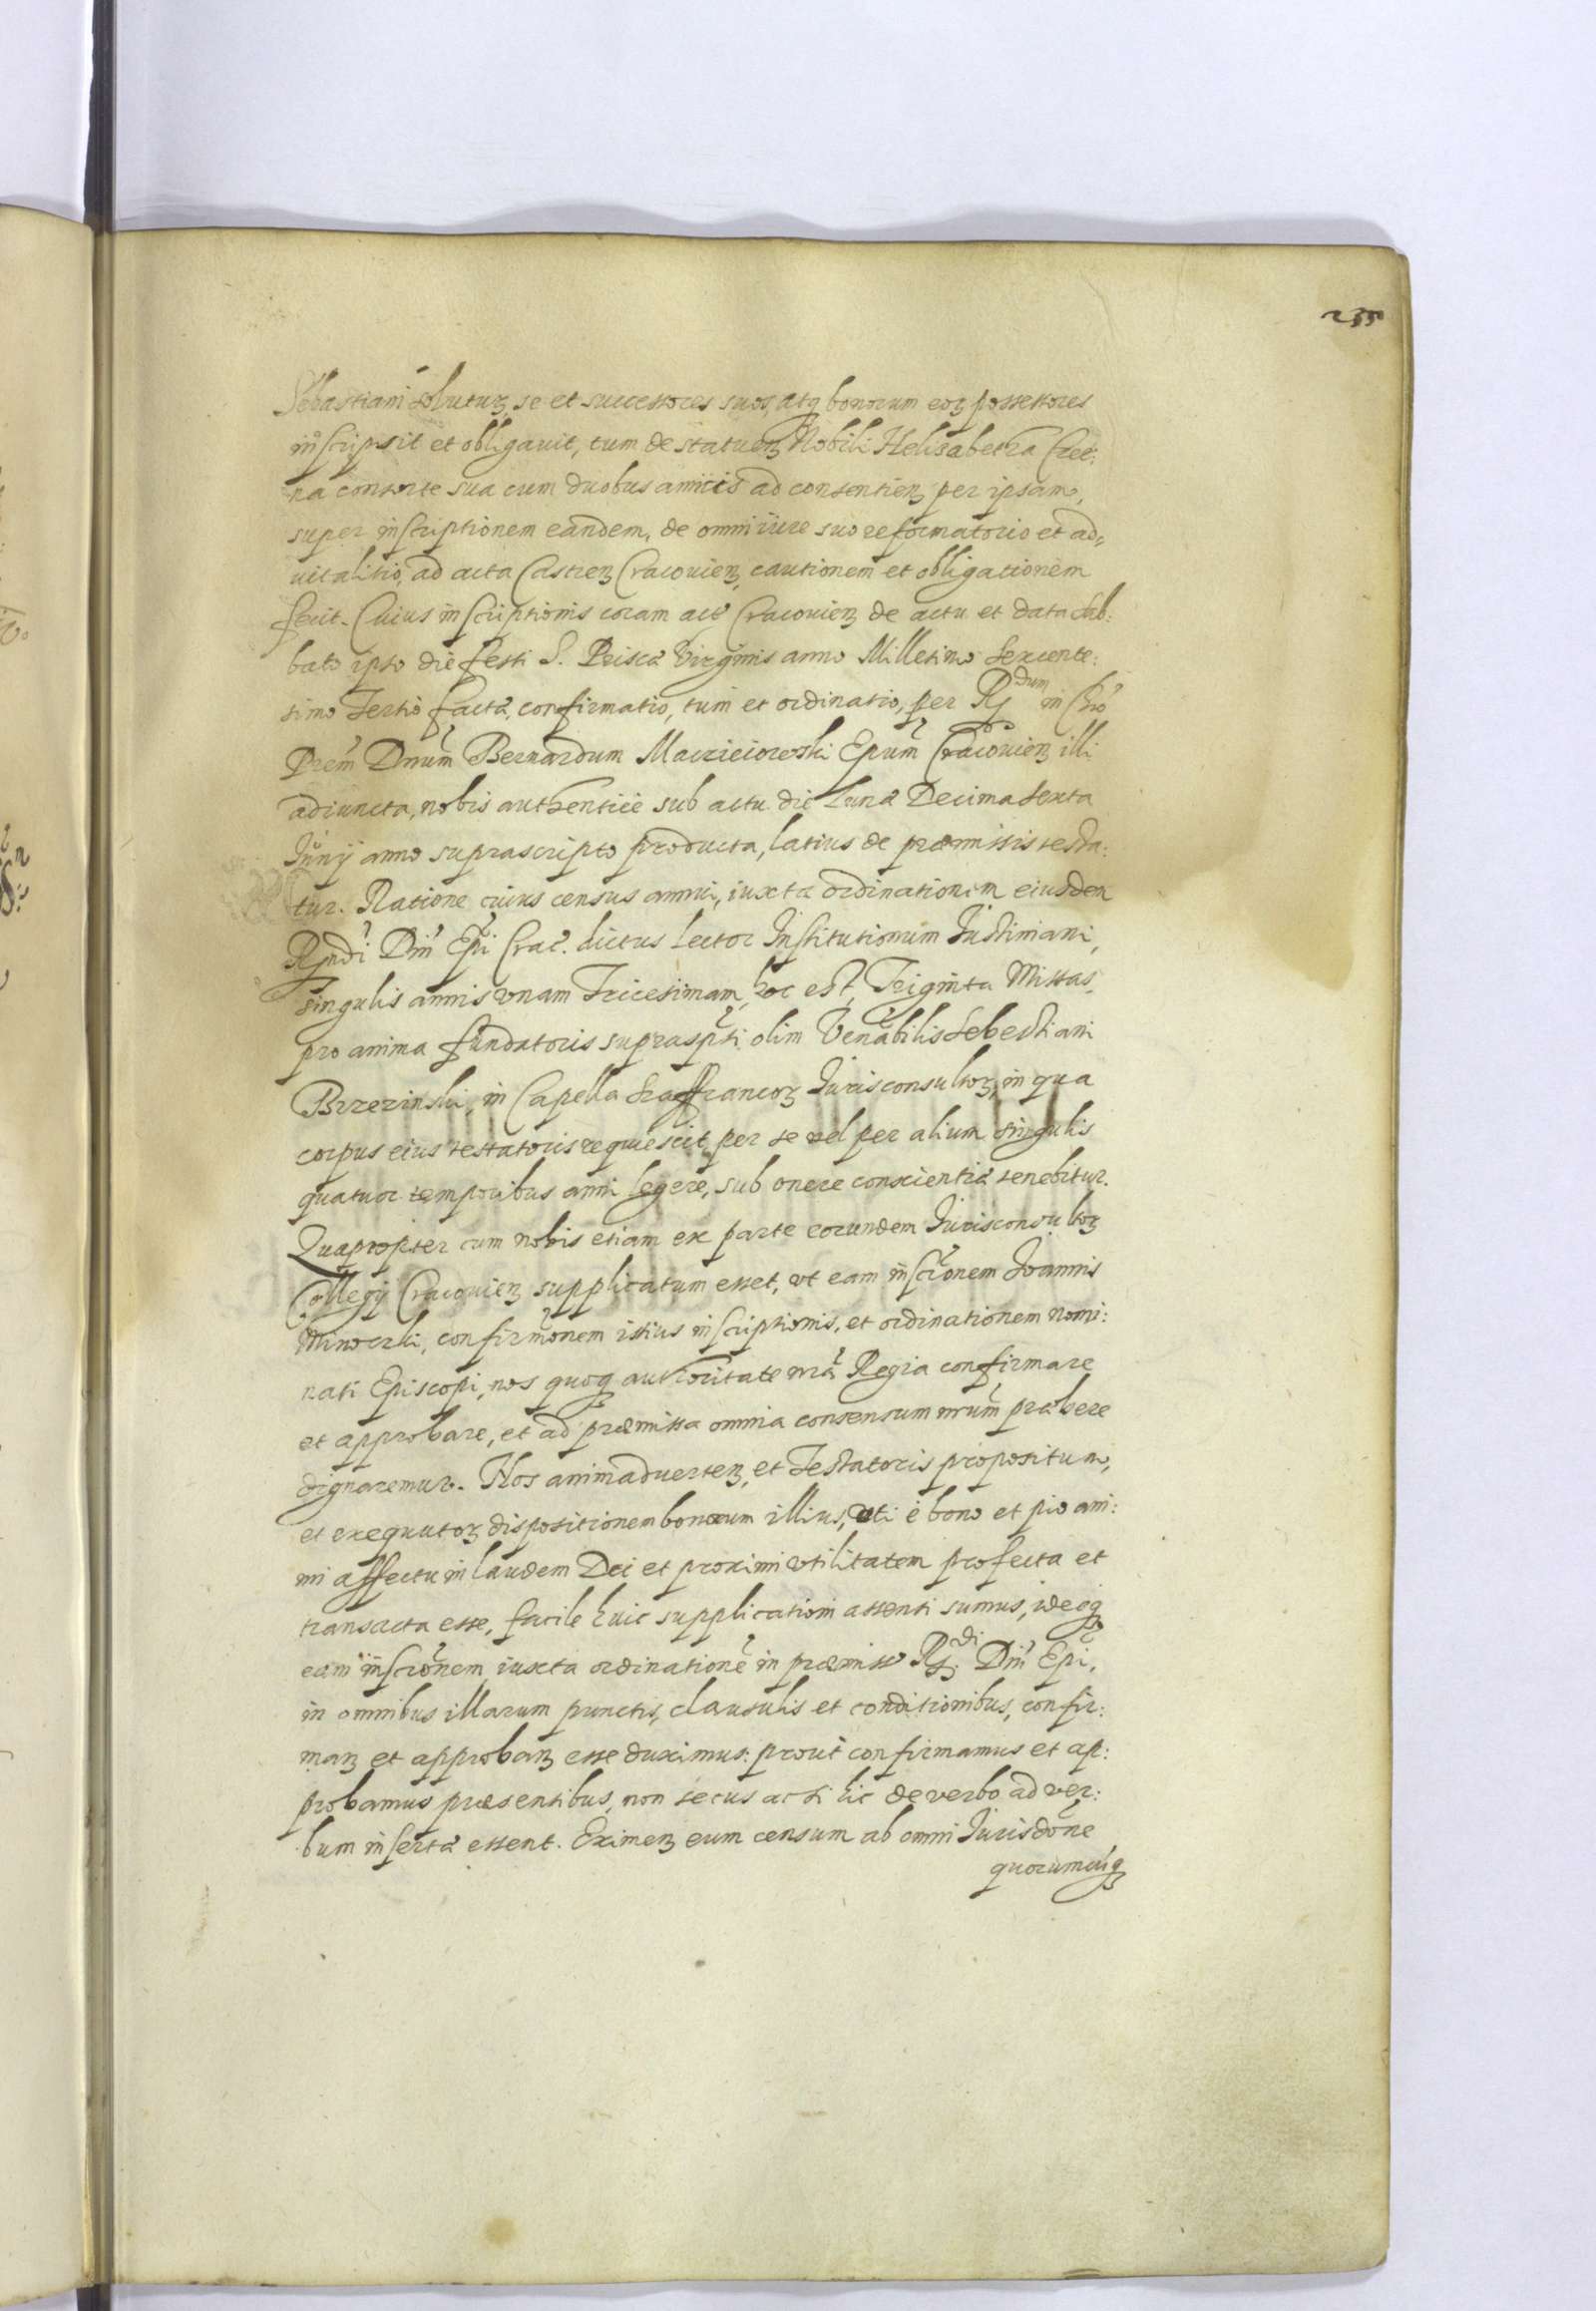 255
Sebastiani soluturꝫ, se et successores suos, atqꝫ bonorum eorꝫ possessores
inscripsit et obligauit, tum de statuenꝫ Nobili Helisabetha Cree:
na consorte sua cum duobus amicis ad consentienꝫ per ipsam,
super inscriptionem eandem, de omni iure suo reformatorio et ad:
uitalitio, ad acta Castrenꝫ Cracouienꝫ, cautionem et obligationem
fecit. Cuius inscriptionis coram actis Cracouienꝫ de actu et data Sab:
bato ipso die festi S. Priscæ Virginis anno Millesimo Sexcente:
simo Tertio factæ, confirmatio, tum et ordinatio, per R{{dum}} in Chrō
Prem̄ Dnūm Bernardum Maczieiowski Epūm Cracouienꝫ illi
adiuncta, nobis authentice sub actu die Lunæ Decima Sexta
Iŭnij anno suprascripto producta, latius de præmissis testa:
tur. Ratione cuius census annui, iuxta ordinationem eiusdem
Rṇdi Dnī Epī Crac. dictus Lector Institutionum Iustiniani,
singulis annis vnam Tricesimam, hoc est, Triginta Missas,
pro anima fundatoris suprasp̄ti olim Venābilis Sebestiani
Brzezinski, in Capella Szaffrancorꝫ Iurisconsultorꝫ, in qua
corpus eius testatoris requiescit, per se vel per alium singulis
quatuor temporibus anni legere, sub onere conscientiæ tenebitur.
Quapropter cum nobis etiam ex parte eorundem Iurisconsultorꝫ
Collegij Cracouienꝫ supplicatum esset, vt eam inscrōnem Ioannis
Minoczki, confirmōnem istius inscriptionis, et ordinationem nomi:
nati Episcopi, nos quoqꝫ authoritate nrā Regia confirmare
et approbare, et ad præmissa omnia consensum nrūm præbere
dignaremur. Nos animaduertenꝫ, et Testatoris propositum,
et exequutorꝫ dispositionem bonorum illius, vti è bono et pio ani:
mi affectu in laudem Dei et proximi vtilitatem profecta et
transacta esse, facile huic supplicationi assensi sumus, ideoqꝫ
eam inscrōnem iuxta ordinationē in præmisso R{{di}} Dnī Epī,
in omnibus illarum punctis, clausulis et conditionibus, confir:
manꝫ et approbanꝫ esse duximus: prout confirmamus et ap:
probamus præsentibus, non secus ac si hic de verbo ad ver:
bum inserta essent. Eximenꝫ eum censum ab omni Iurisdōne
quorumcūqꝫ